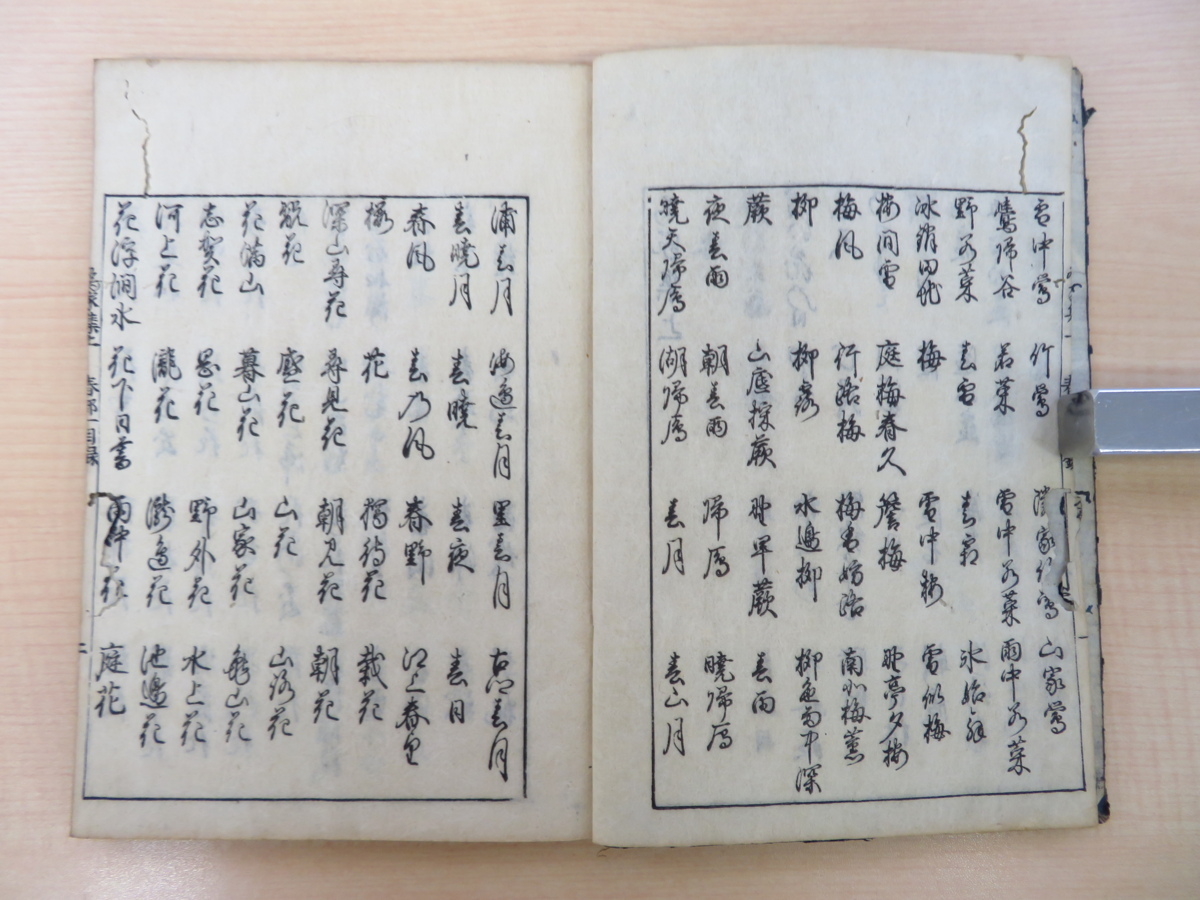 雪中鶯 竹鶯 隣家竹鶯 山家鶯
鶯帰谷 若菜 雪中若菜 雨中若菜
野若菜 春雪 春氷 氷始解
氷消田地 梅 雪中梅 雪似梅
梅間雪 庭梅春久 簷梅 野亭夕梅
梅風 行路梅 梅香妨路 南北梅薫
柳 柳露 水邊柳 柳遮高中深
蕨 山居採蕨 野早蕨
夜春雨 朝春雨 帰雁 春雨
暁天帰雁 湖帰雁 春月 暁帰雁
春山月
浦春月 海邊春月 里春月 古郷春月
春暁月 春暁 春夜 春日
春風 春乃風 春野 江上春望
桜 花 待花 栽花
深山尋花 尋見花 朝見花 朝花
翫花 歴花 山花 山路花
花満山 暮山花 山家花 亀山花
志賀花 関花 野外花 水上花
河上花 瀧花 瀧邊花 池邊花
花浮澗水 花下日暮 雨中花 庭花
春部一目録